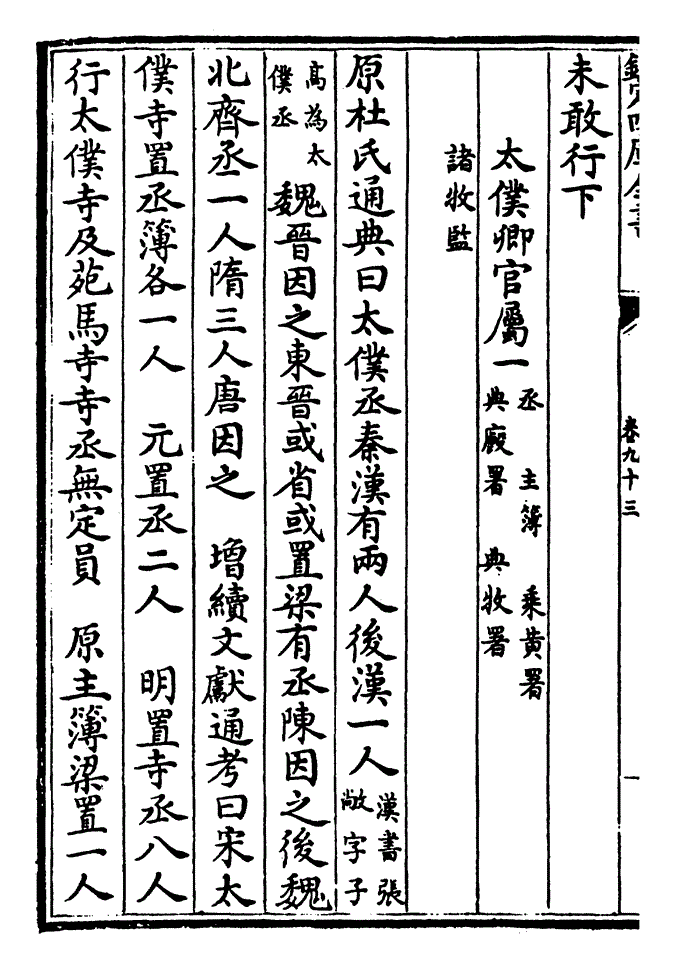 欽定四庫全書
卷九十三
一
未敢行下
太僕卿官屬一
丞　主簿　乘黃署
典廐署　典牧署
諸牧監
原杜氏通典曰太僕丞秦漢有兩人後漢一人漢書張
敞字子
高為太
僕丞魏晉因之東晉或省或置梁有丞陳因之後魏
北齊丞一人隋三人唐因之　增續文獻通考曰宋太
僕寺置丞簿各一人　元置丞二人　明置寺丞八人
行太僕寺及苑馬寺寺丞無定員　原主簿梁置一人